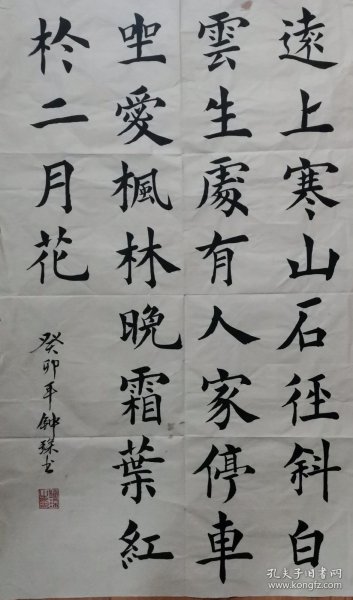 遠上寒山石徑斜白
雲生處有人家停車
坐愛楓林晚霜葉紅
於二月花
癸卯年鈡珠书
孔夫子旧书网